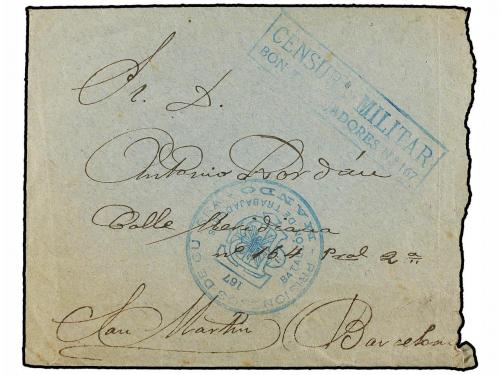 CENSURA MILITAR
BON TRABAJADORES Nº 167
Sr. D.
Antonio Jordán
Calle Meridiana
nº 164 Pral 2ª
San Martin (Barcelona
PRISIONEROS DE GUERRA
MANDO
BATALLON DE TRABAJADORES
167